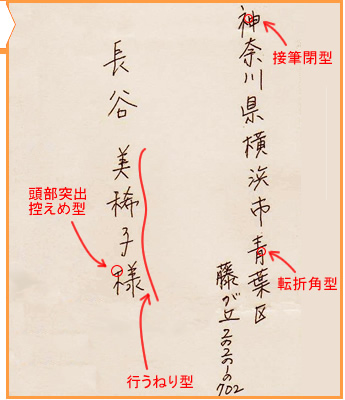 神奈川県横浜市青葉区
藤が丘二の二の一の702
長谷 美稀子様
接筆閉型
転折角型
頭部突出
控えめ型
行うねり型